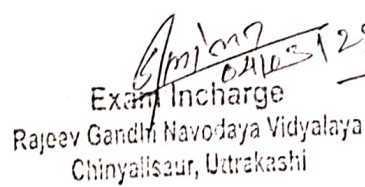 Exam Incharge
Rajeev Gandhi Navodaya Vidyalaya
Chinyalisaur, Uttrakashi